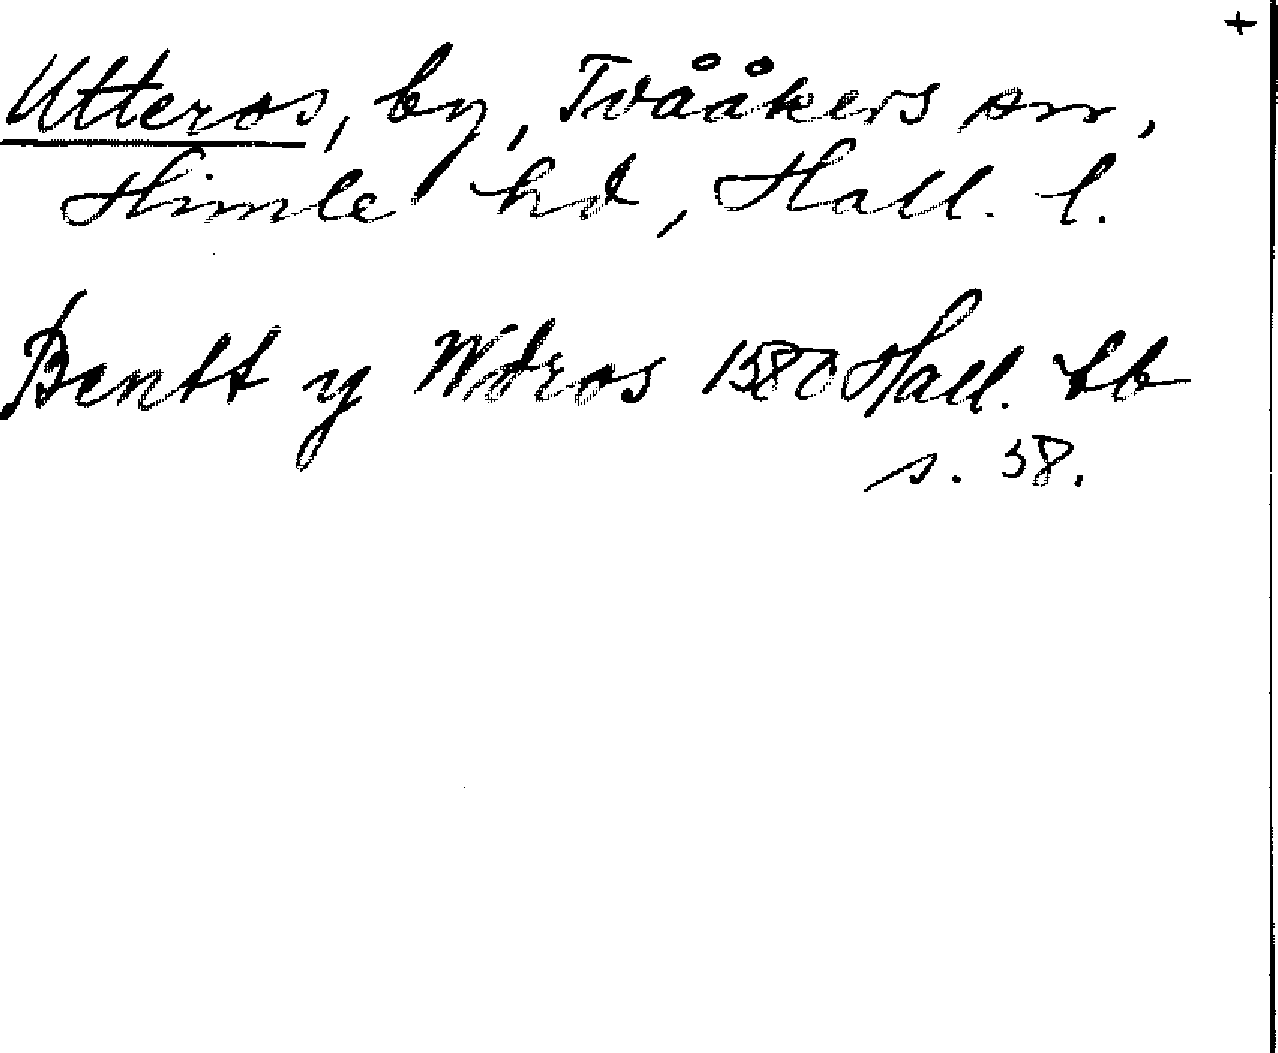 +
Utteros, by, Tvååkers sn,
Himle hd, Hall. l.
Bentt y Wdros 1580 Hall. tb
s. 38.